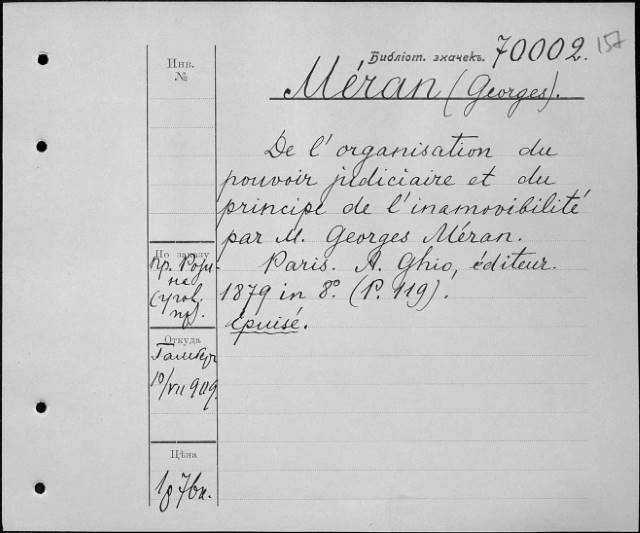 Библіот. значекъ. 70002. 157
Инв.
№
Méran (Georges).
De l'organisation du
pouvoir judiciaire et du
principe de l'inamovibilité
par M. Georges Méran.
Paris. A. Ghio, éditeur.
1879 in 8º. (P. 119).
épuisé.
По заказу
пр. Розин-
не
(угов.
пр).
Откуда
Гамбург
10/VII 909.
Цѣна